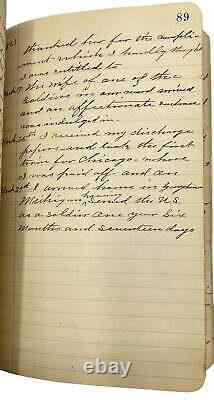 89
thanked her for the compli-
ment which I hardly thought
I was entitled to
The wife of one of the
Soldiers in our ward arrived
and an affectionate embrace
was indulged in.
I received my discharge
papers and took the first
train for Chicago where
I was paid off and on
I arrived home in
Michigan having served the U.S.
as a soldier One year Six
Months and seventeen days
© ebay.com